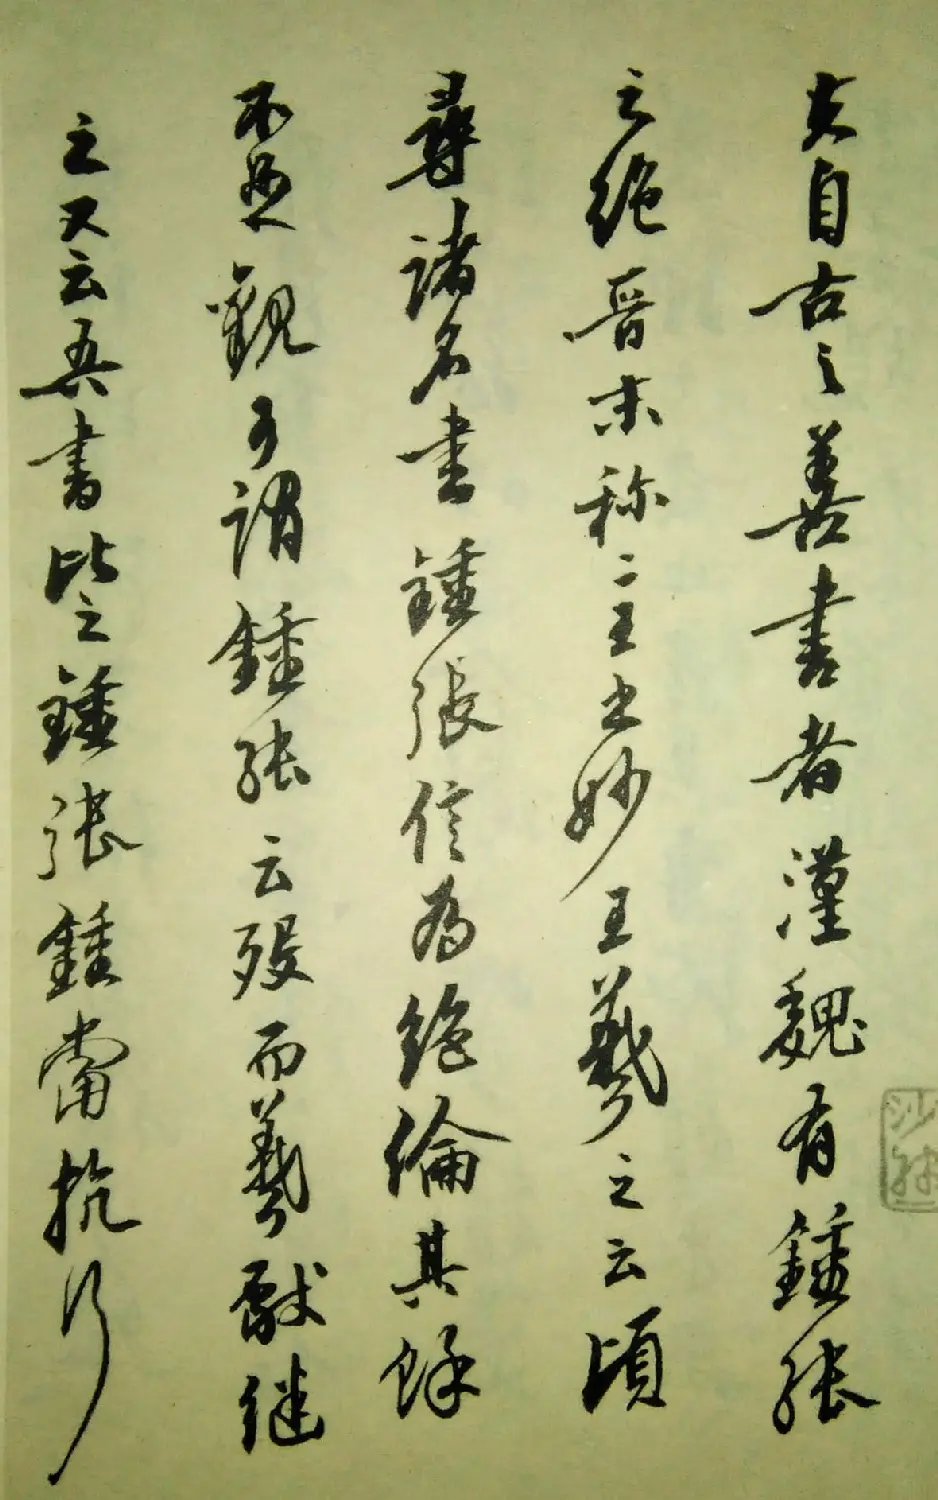 夫自古之善書者漢魏有鍾張
之绝晋末称二王之妙王羲之云頃
尋諸名書鍾張信為绝倫其餘
不足觀可謂鍾張云歿而羲獻继
之又云吾書比之鍾張鍾當抗行